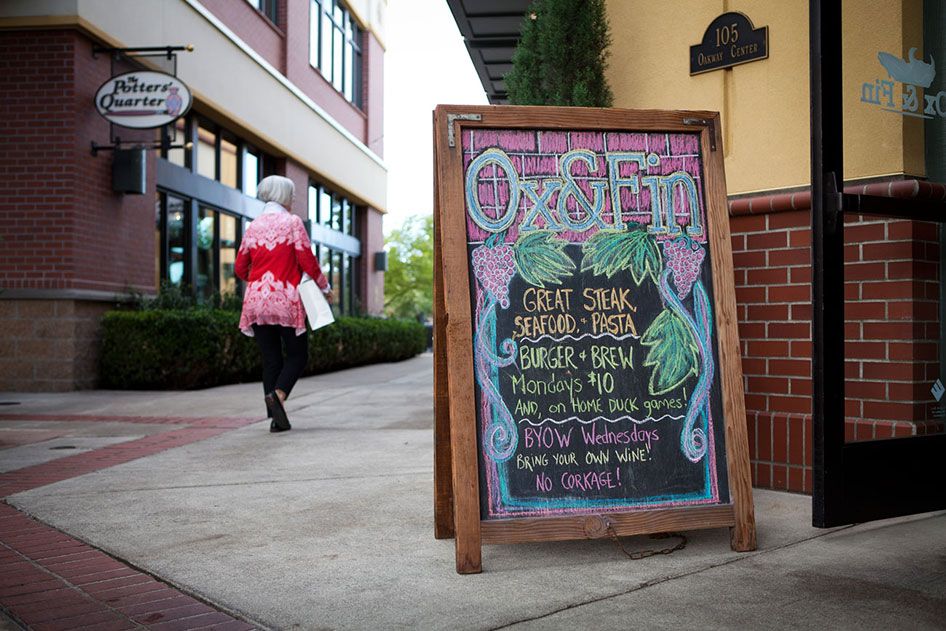 The
Potters'
Quarter
105
OAKWAY CENTER
Ox & Fin
Ox&Fin
GREAT STEAK,
SEAFOOD, + PASTA
BURGER + BREW
Mondays $10
AND, on HOME DUCK games!
BYOW Wednesdays
BRING YOUR OWN WINE!
NO CORKAGE!